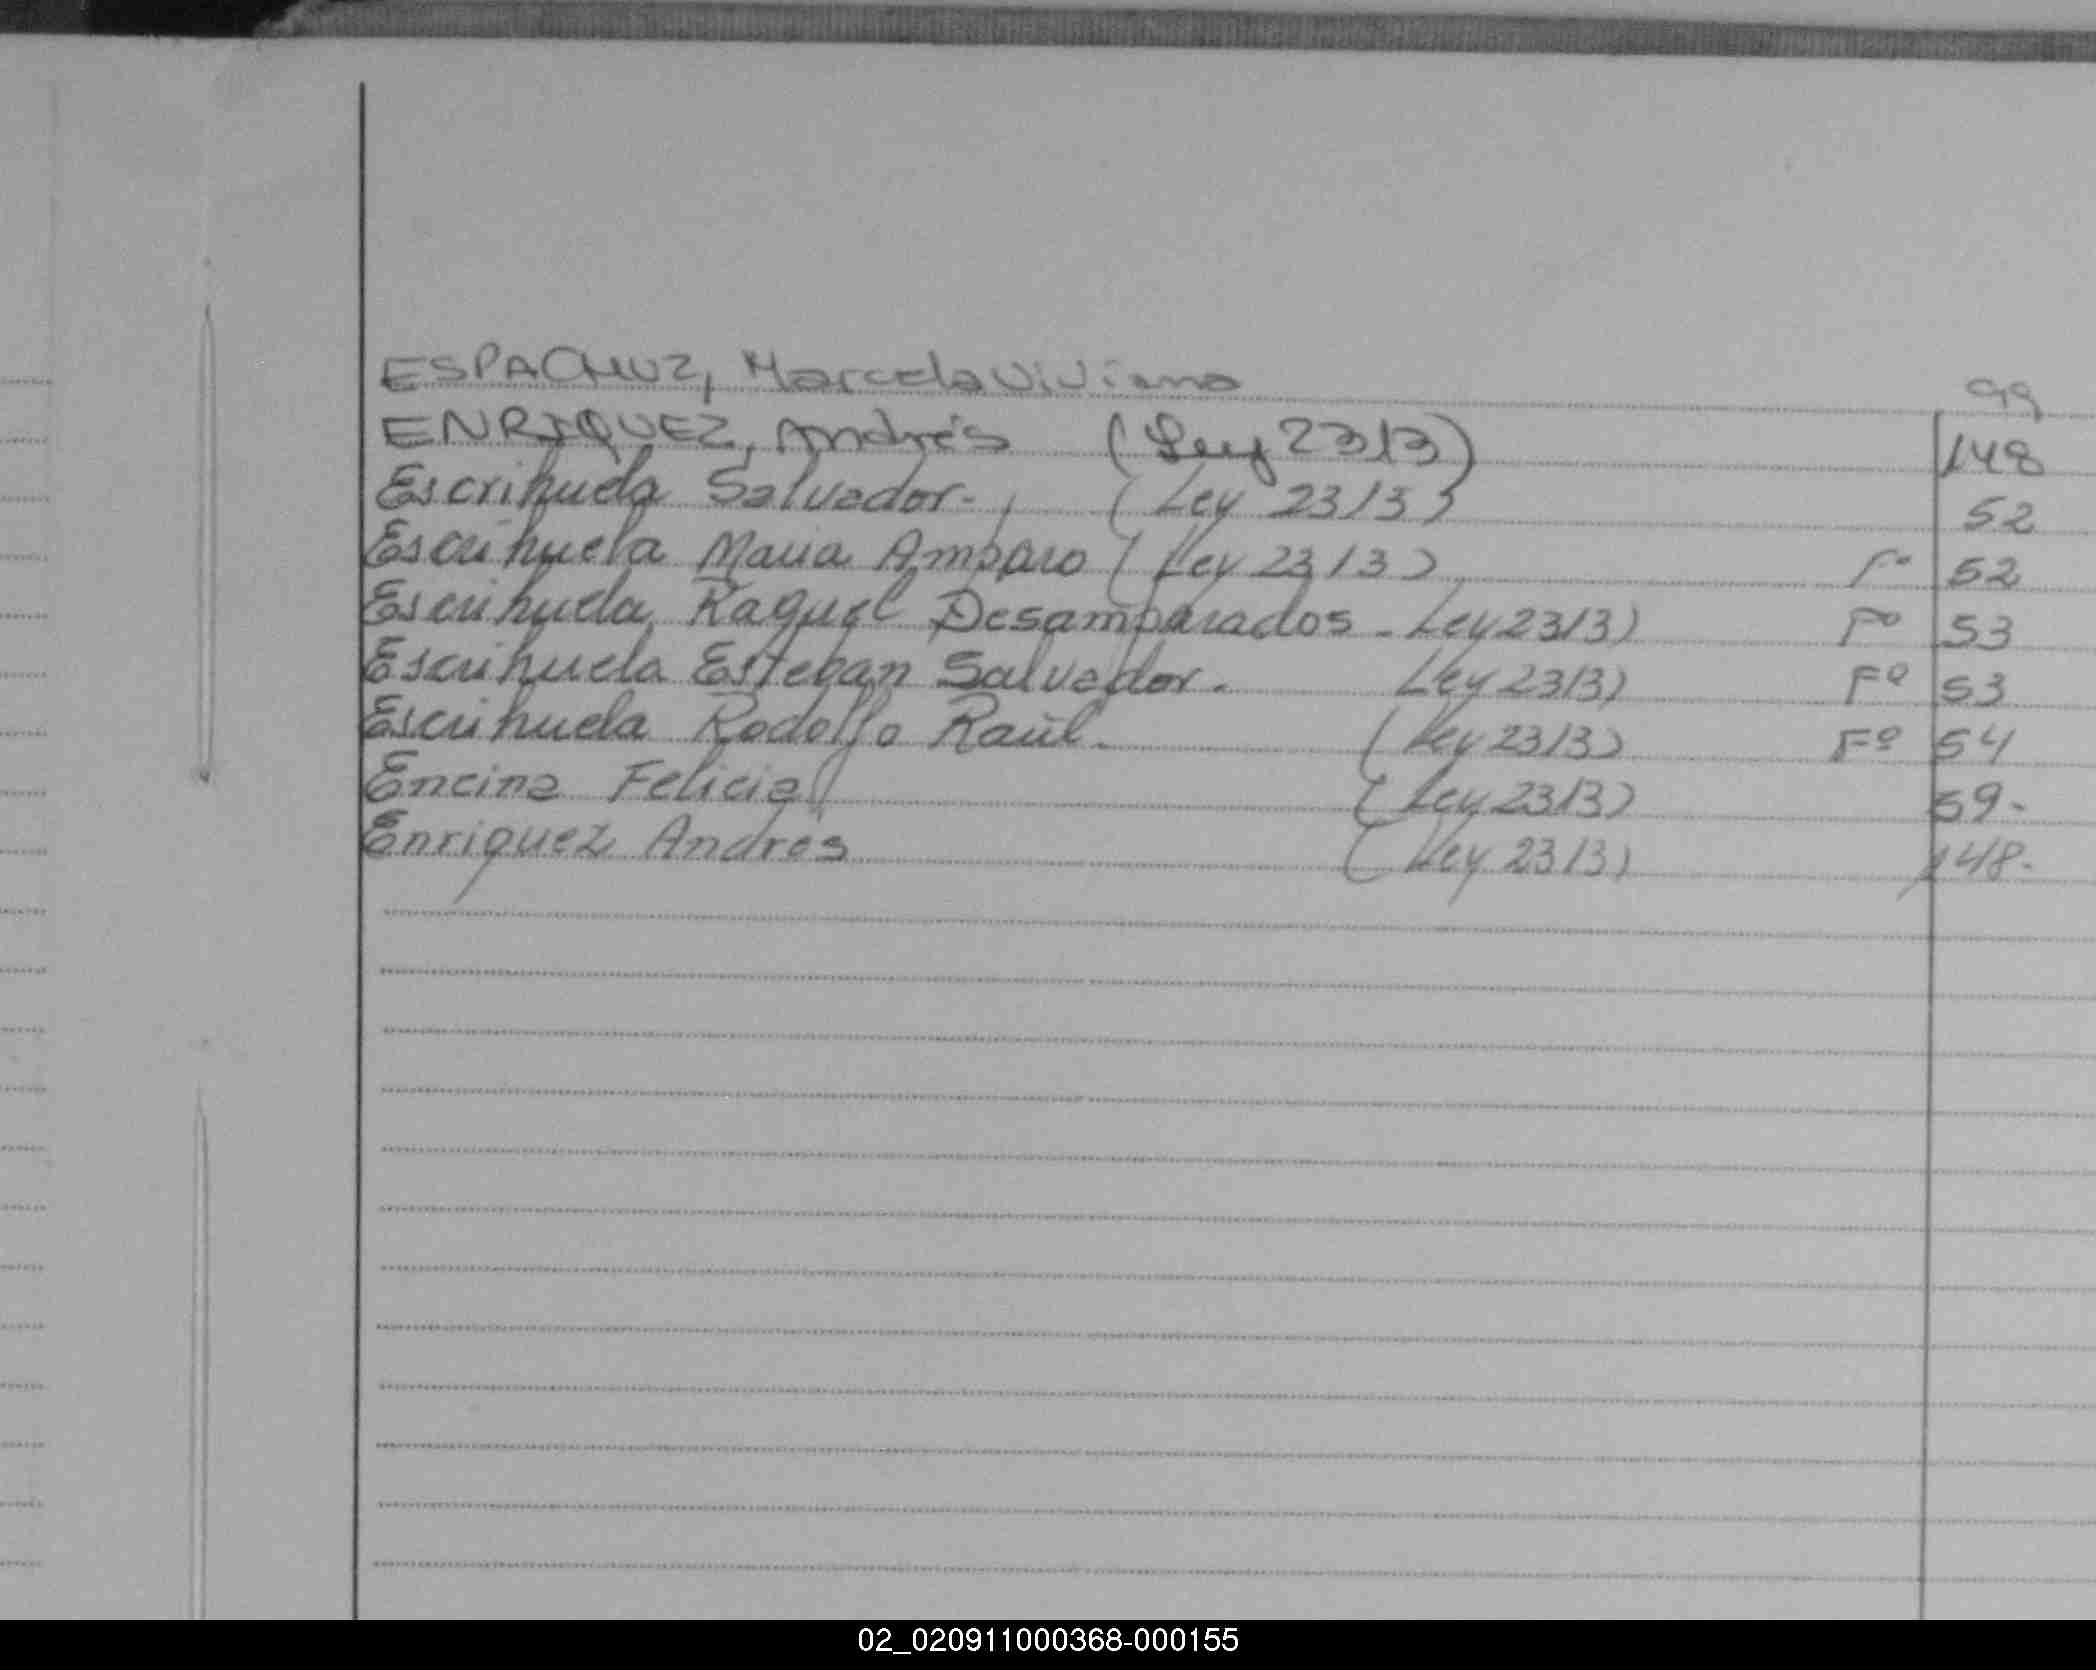 ESPACHUZ, Marcela Viviana 99
ENRIQUEZ, Andrés (Ley 2313) 148
Escrihuela Salvador-, (Ley 2313) 52
Escrihuela Maria Amparo (Ley 2313) Fº 52
Escrihuela Raquel Desamparados - Ley 2313) Fº 53
Escrihuela Esteban Salvador. Ley 2313) Fº 53
Escrihuela Rodolfo Raúl. (Ley 2313) Fº 54
Encina Felicia (Ley 2313) 59.
Enriquez Andres (Ley 2313) 148.
02_020911000368-000155